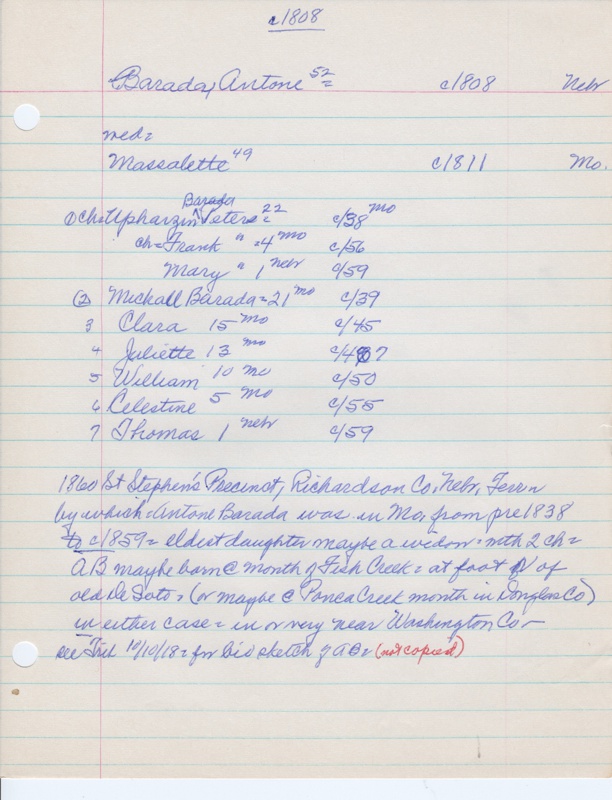 c1808
Barada, Antone 52 = c/1808 Nebr
med =
Massalette 49 c/1811 Mo.
Barada
① ch = Upharzin Peters = 22 c/38 Mo
ch = Frank " = 4 Mo c/56
Mary " 1 Nebr c/59
② Michall Barada = 21 Mo c/39
3 Clara 15 Mo c/45
4 Juliette 13 Mo c/47
5 William 10 Mo c/50
6 Celestine 5 Mo c/55
7 Thomas 1 Nebr c/59
1860 St Stephen's Precinct, Richardson Co, Nebr, Terr =
by which = Antone Barada was in Mo, from pre 1838
to c1859 = eldest daughter maybe a widow = with 2 ch =
AB maybe born @ month of Fish Creek = at foot N of
old De Soto = (or maybe @ Ponca Creek month in Douglas Co)
in either case = in or very near Washington Co -
see Trib 10/10/18 = for bio sketch of AB = (not copied)